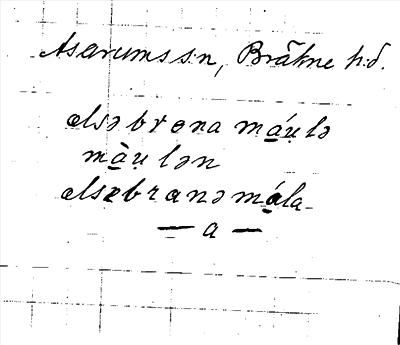 Asarums sn, Bräkne h:d.
elsəbrɵna má̱u̯lə
mà̱u̯lən
elsebranəmá̱la
— a —